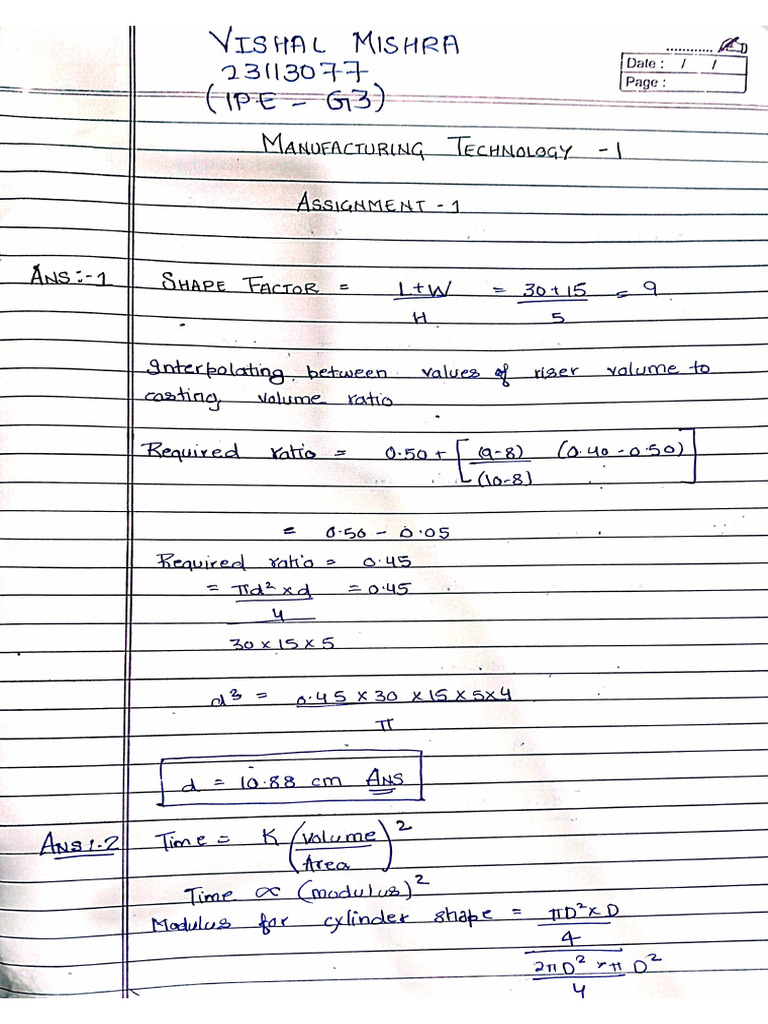 VISHAL MISHRA
23113077
(IPE - G3)
Date : / /
Page :
MANUFACTURING TECHNOLOGY - 1
ASSIGNMENT - 1
ANS :- 1 SHAPE FACTOR = L+W / H = 30+15 / 5 = 9
Interpolating between values of riser volume to
casting volume ratio
Required ratio = 0.50 + [ (9-8) / (10-8) (0.40 - 0.50) ]
= 0.50 - 0.05
Required ratio = 0.45
= πd² x d / 4 / 30 x 15 x 5 = 0.45
d³ = 0.45 x 30 x 15 x 5 x 4 / π
d = 10.88 cm ANS
ANS 1.2 Time = K (Volume / Area)²
Time ∝ (modulus)²
Modulus for cylinder shape = πD² x D / 4 / 2πD² x π D² / 4